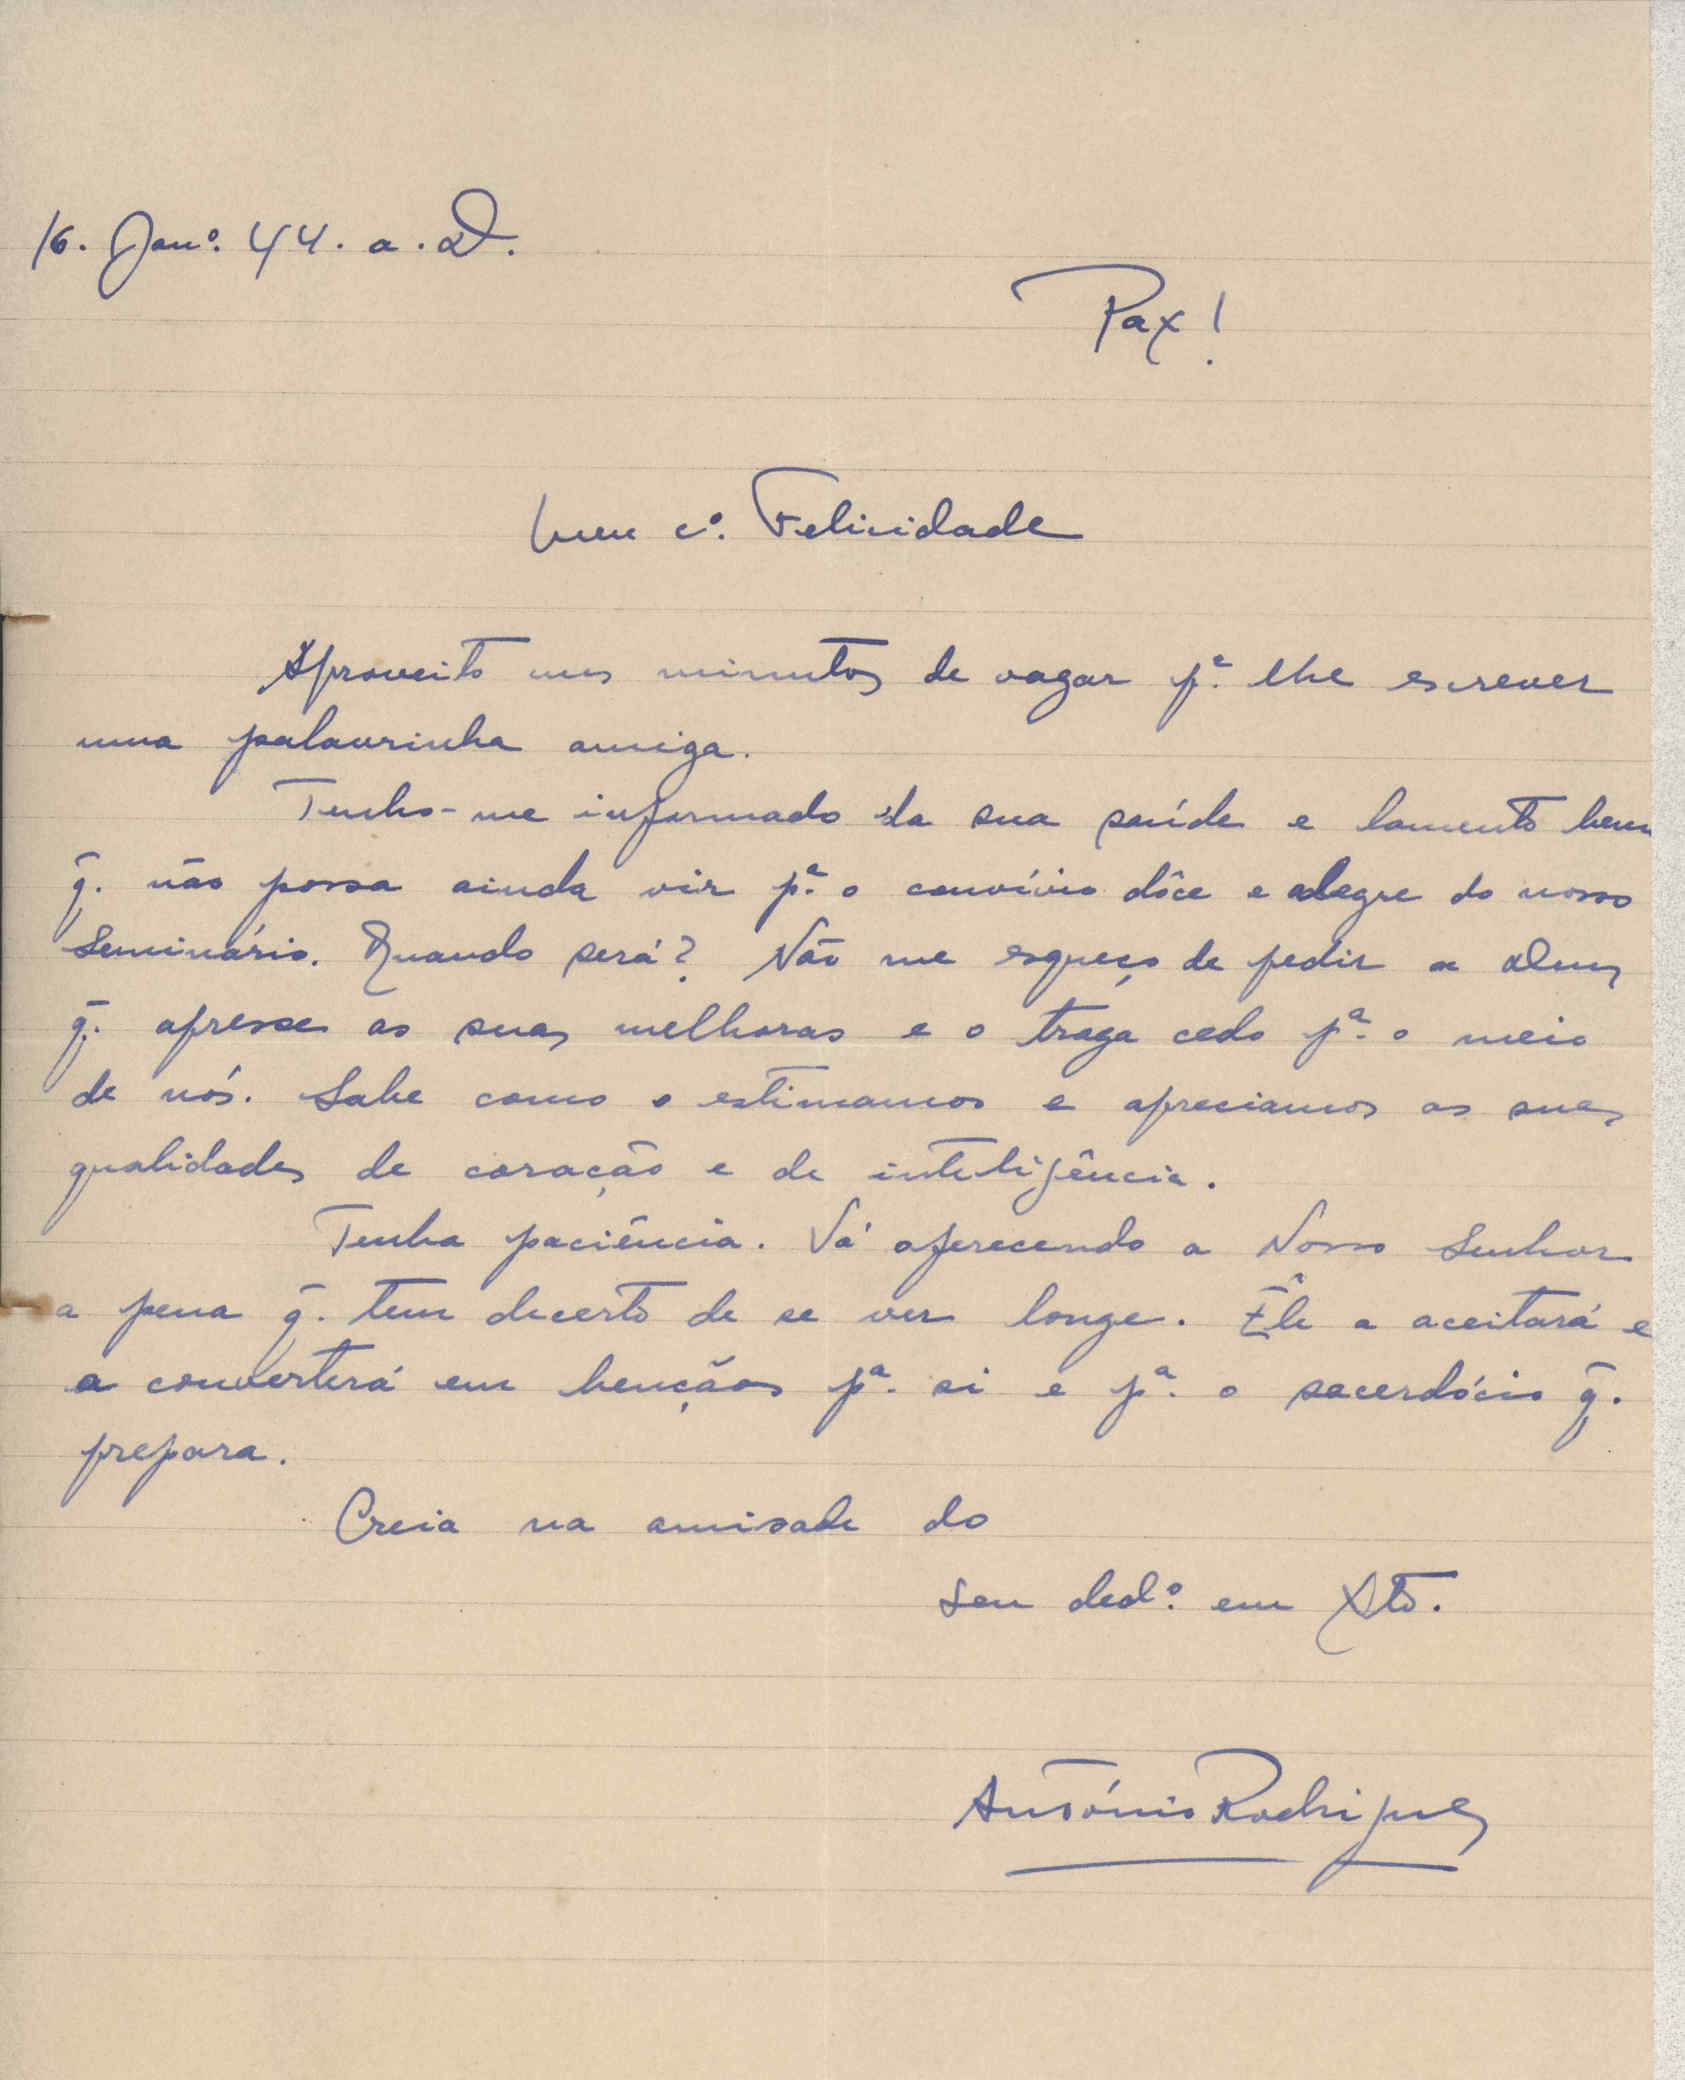 16. Janº. 44. a. D.
Pax!
Meu cº. Felicidade
Aproveito uns minutos de vagar pª. lhe escrever
uma palavrinha amiga.
Tenho-me informado da sua saúde e lamento bem
q̄. não possa ainda vir pª. o convívio dôce e alegre do nosso
Seminário. Quando será? Não me esqueço de pedir a Deus
q̄. apresse as suas melhoras e o traga cedo pª. o meio
de nós. Sabe como o estimamos e apreciamos as suas
qualidades de coração e de inteligência.
Tenha paciência. Vá oferecendo a Nosso Senhor
a pena q̄. tem decerto de se ver longe. Êle a aceitará e
a converterá em bençãos pª. si e pª. o sacerdócio q̄.
prepara.
Creia na amisade do
seu dedº. em Xto.
António Rodrigues